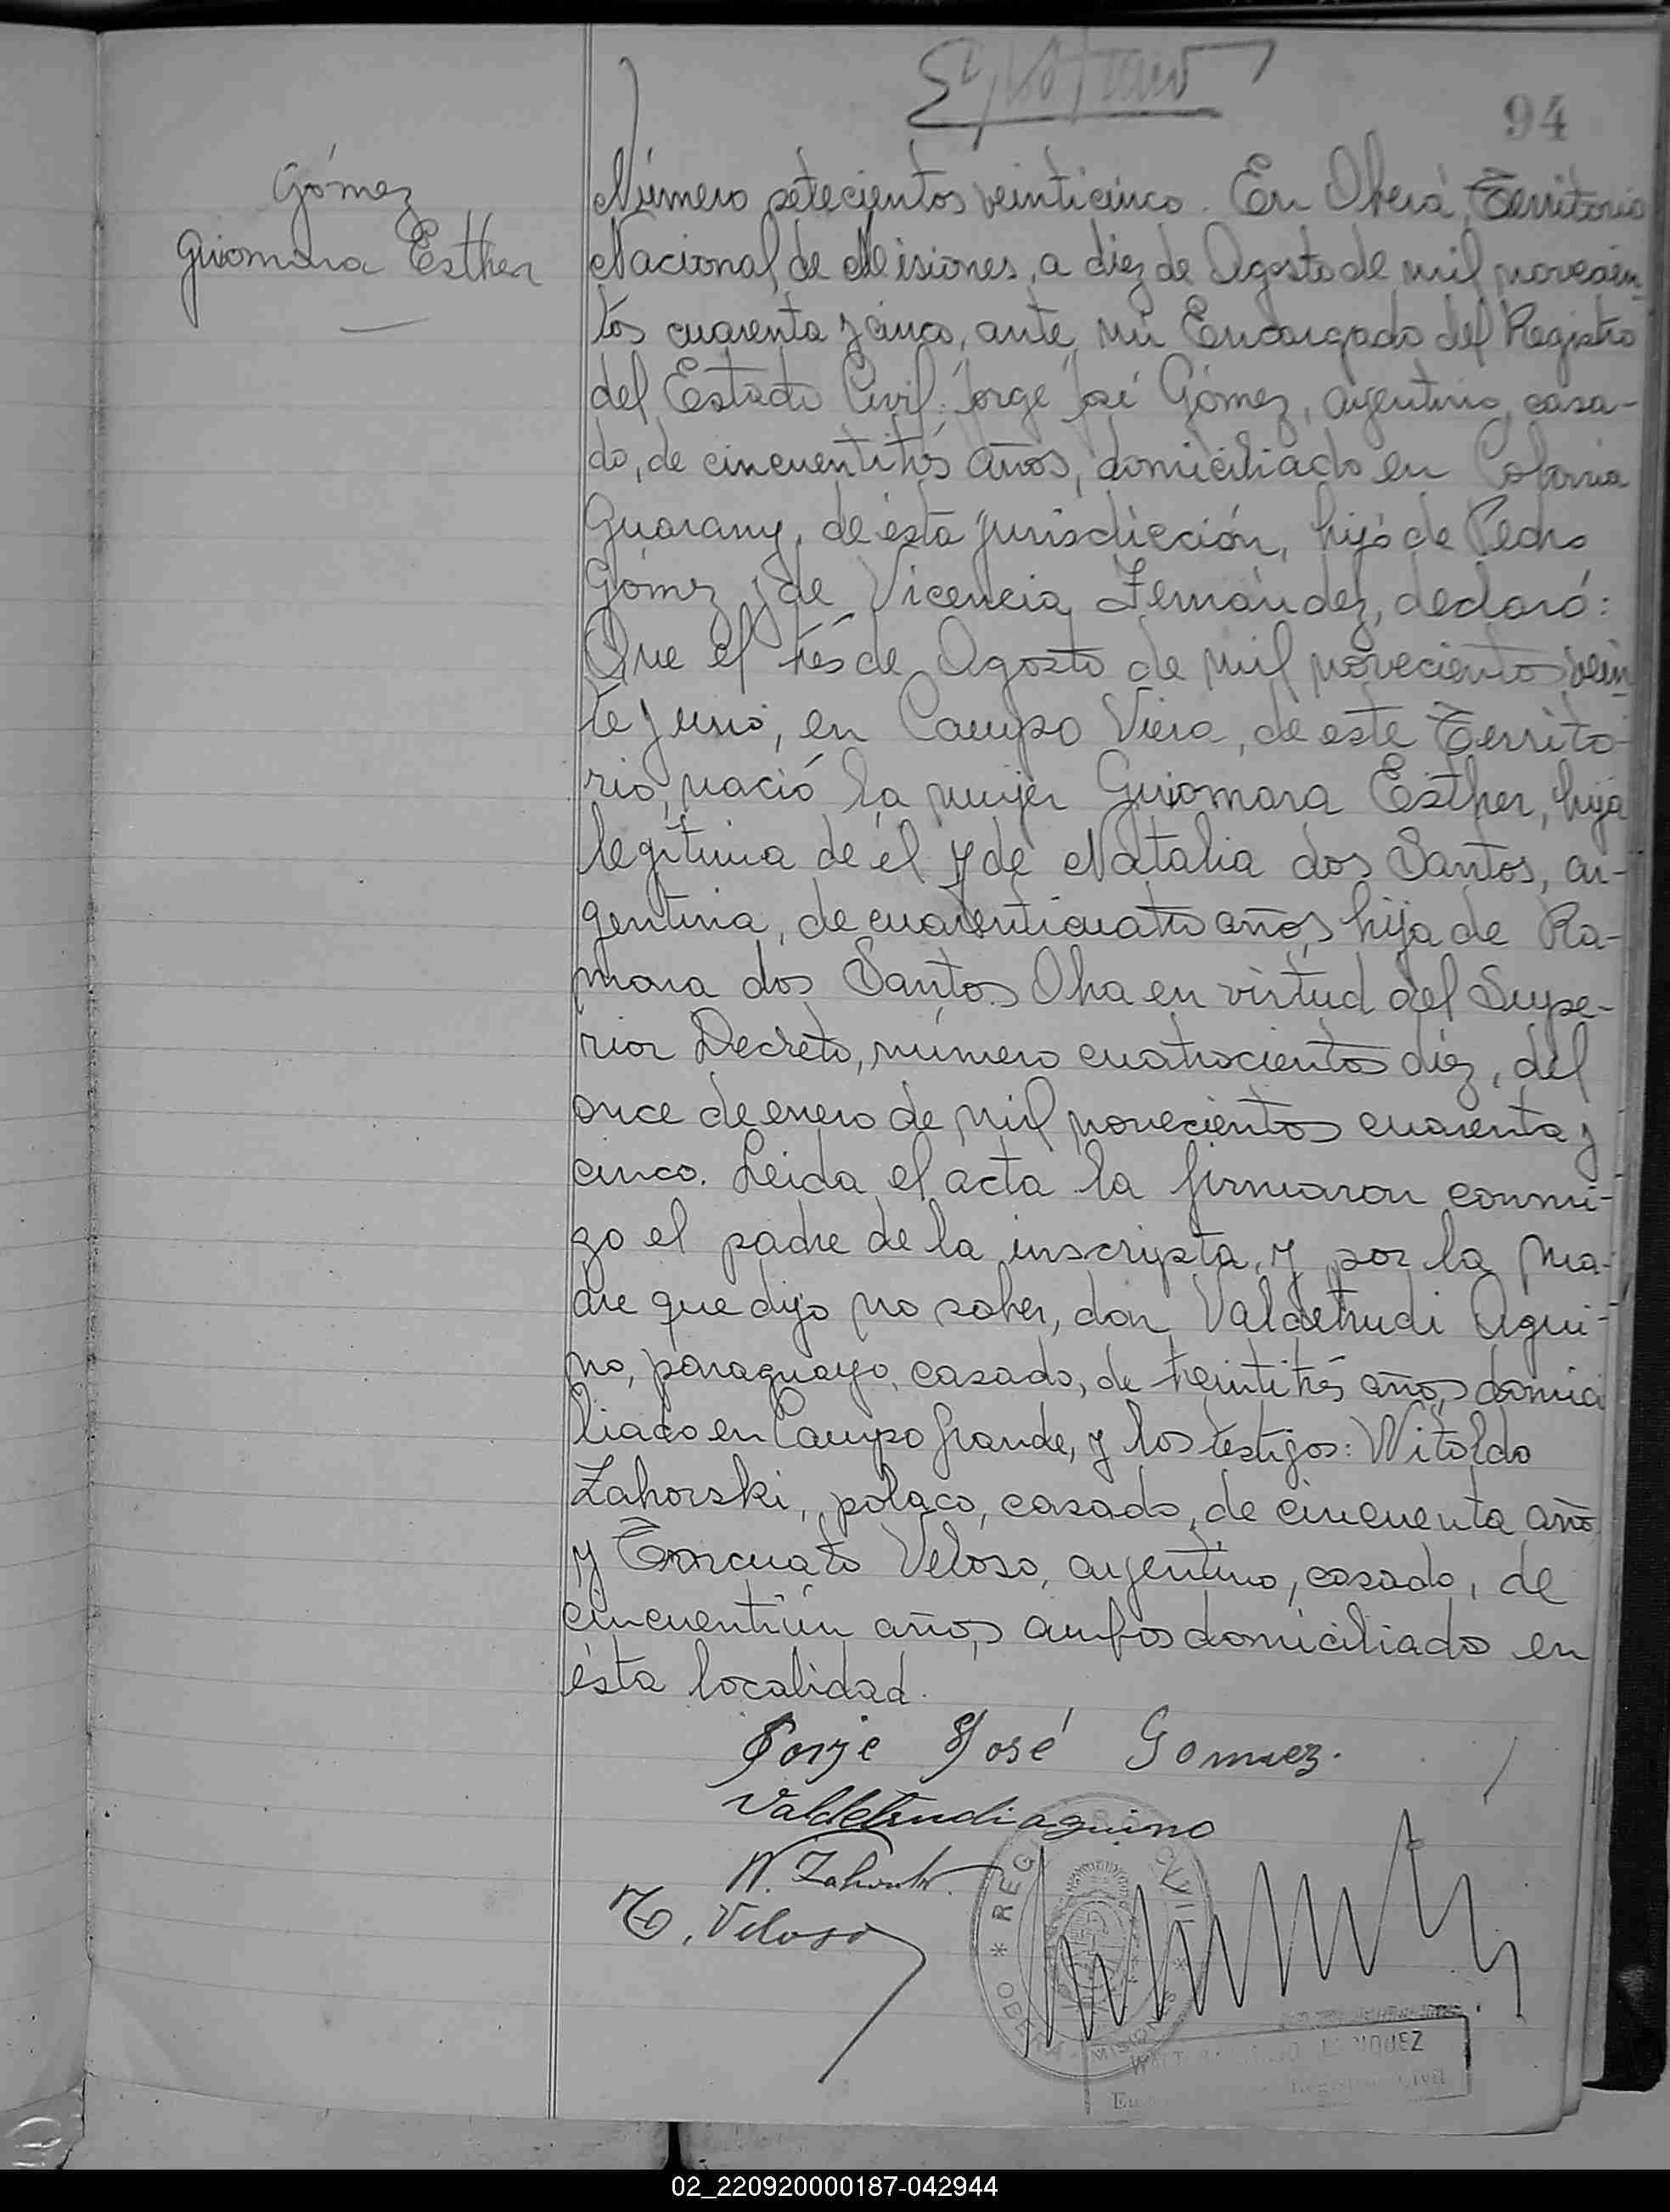 94
Gómez
Guiomara Esther
Número setecientos veinticinco. En Oberá, Territorio
Nacional de Misiones, a diez de Agosto de mil novecien-
tos cuarenta y cinco, ante mi Encargado del Registro
del Estado Civil: Jorge José Gómez, argentino, casa-
do, de cincuentitrés años, domiciliado en Colonia
Guarany, de ésta jurisdicción, hijo de Pedro
Gómez y de Vicencia Fernández, declaró:
Que el tres de Agosto de mil novecientos vein-
te y uno, en Campo Viera, de este Territo-
rio, nació la mujer Guiomara Esther, hija
legítima de él y de Natalia dos Santos, ar-
gentina, de cuarenticuatro años, hija de Ra-
mona dos Santos. Oha en virtud del Supe-
rior Decreto, número cuatrocientos diez, del
once de enero de mil novecientos cuarenta y
cinco. Leida el acta la firmaron conmi-
go el padre de la inscripta, y por la ma-
dre que dijo no saber, don Valdetrudi Aqui-
no, paraguayo, casado, de treintitrés años, domici
liado en Campo Grande, y los testigos: Witoldo
Zahorski, polaco, casado, de cincuenta años
y Torcuato Veloso, argentino, casado, de
cincuentiún años, ambos domiciliados en
ésta localidad.
Jorje José Gomez.
Valdetrudi aquino
W. Zahorski
T. Veloso
REG CIVIL
OBERA - MISIONES
Registro Civil
02_220920000187-042944